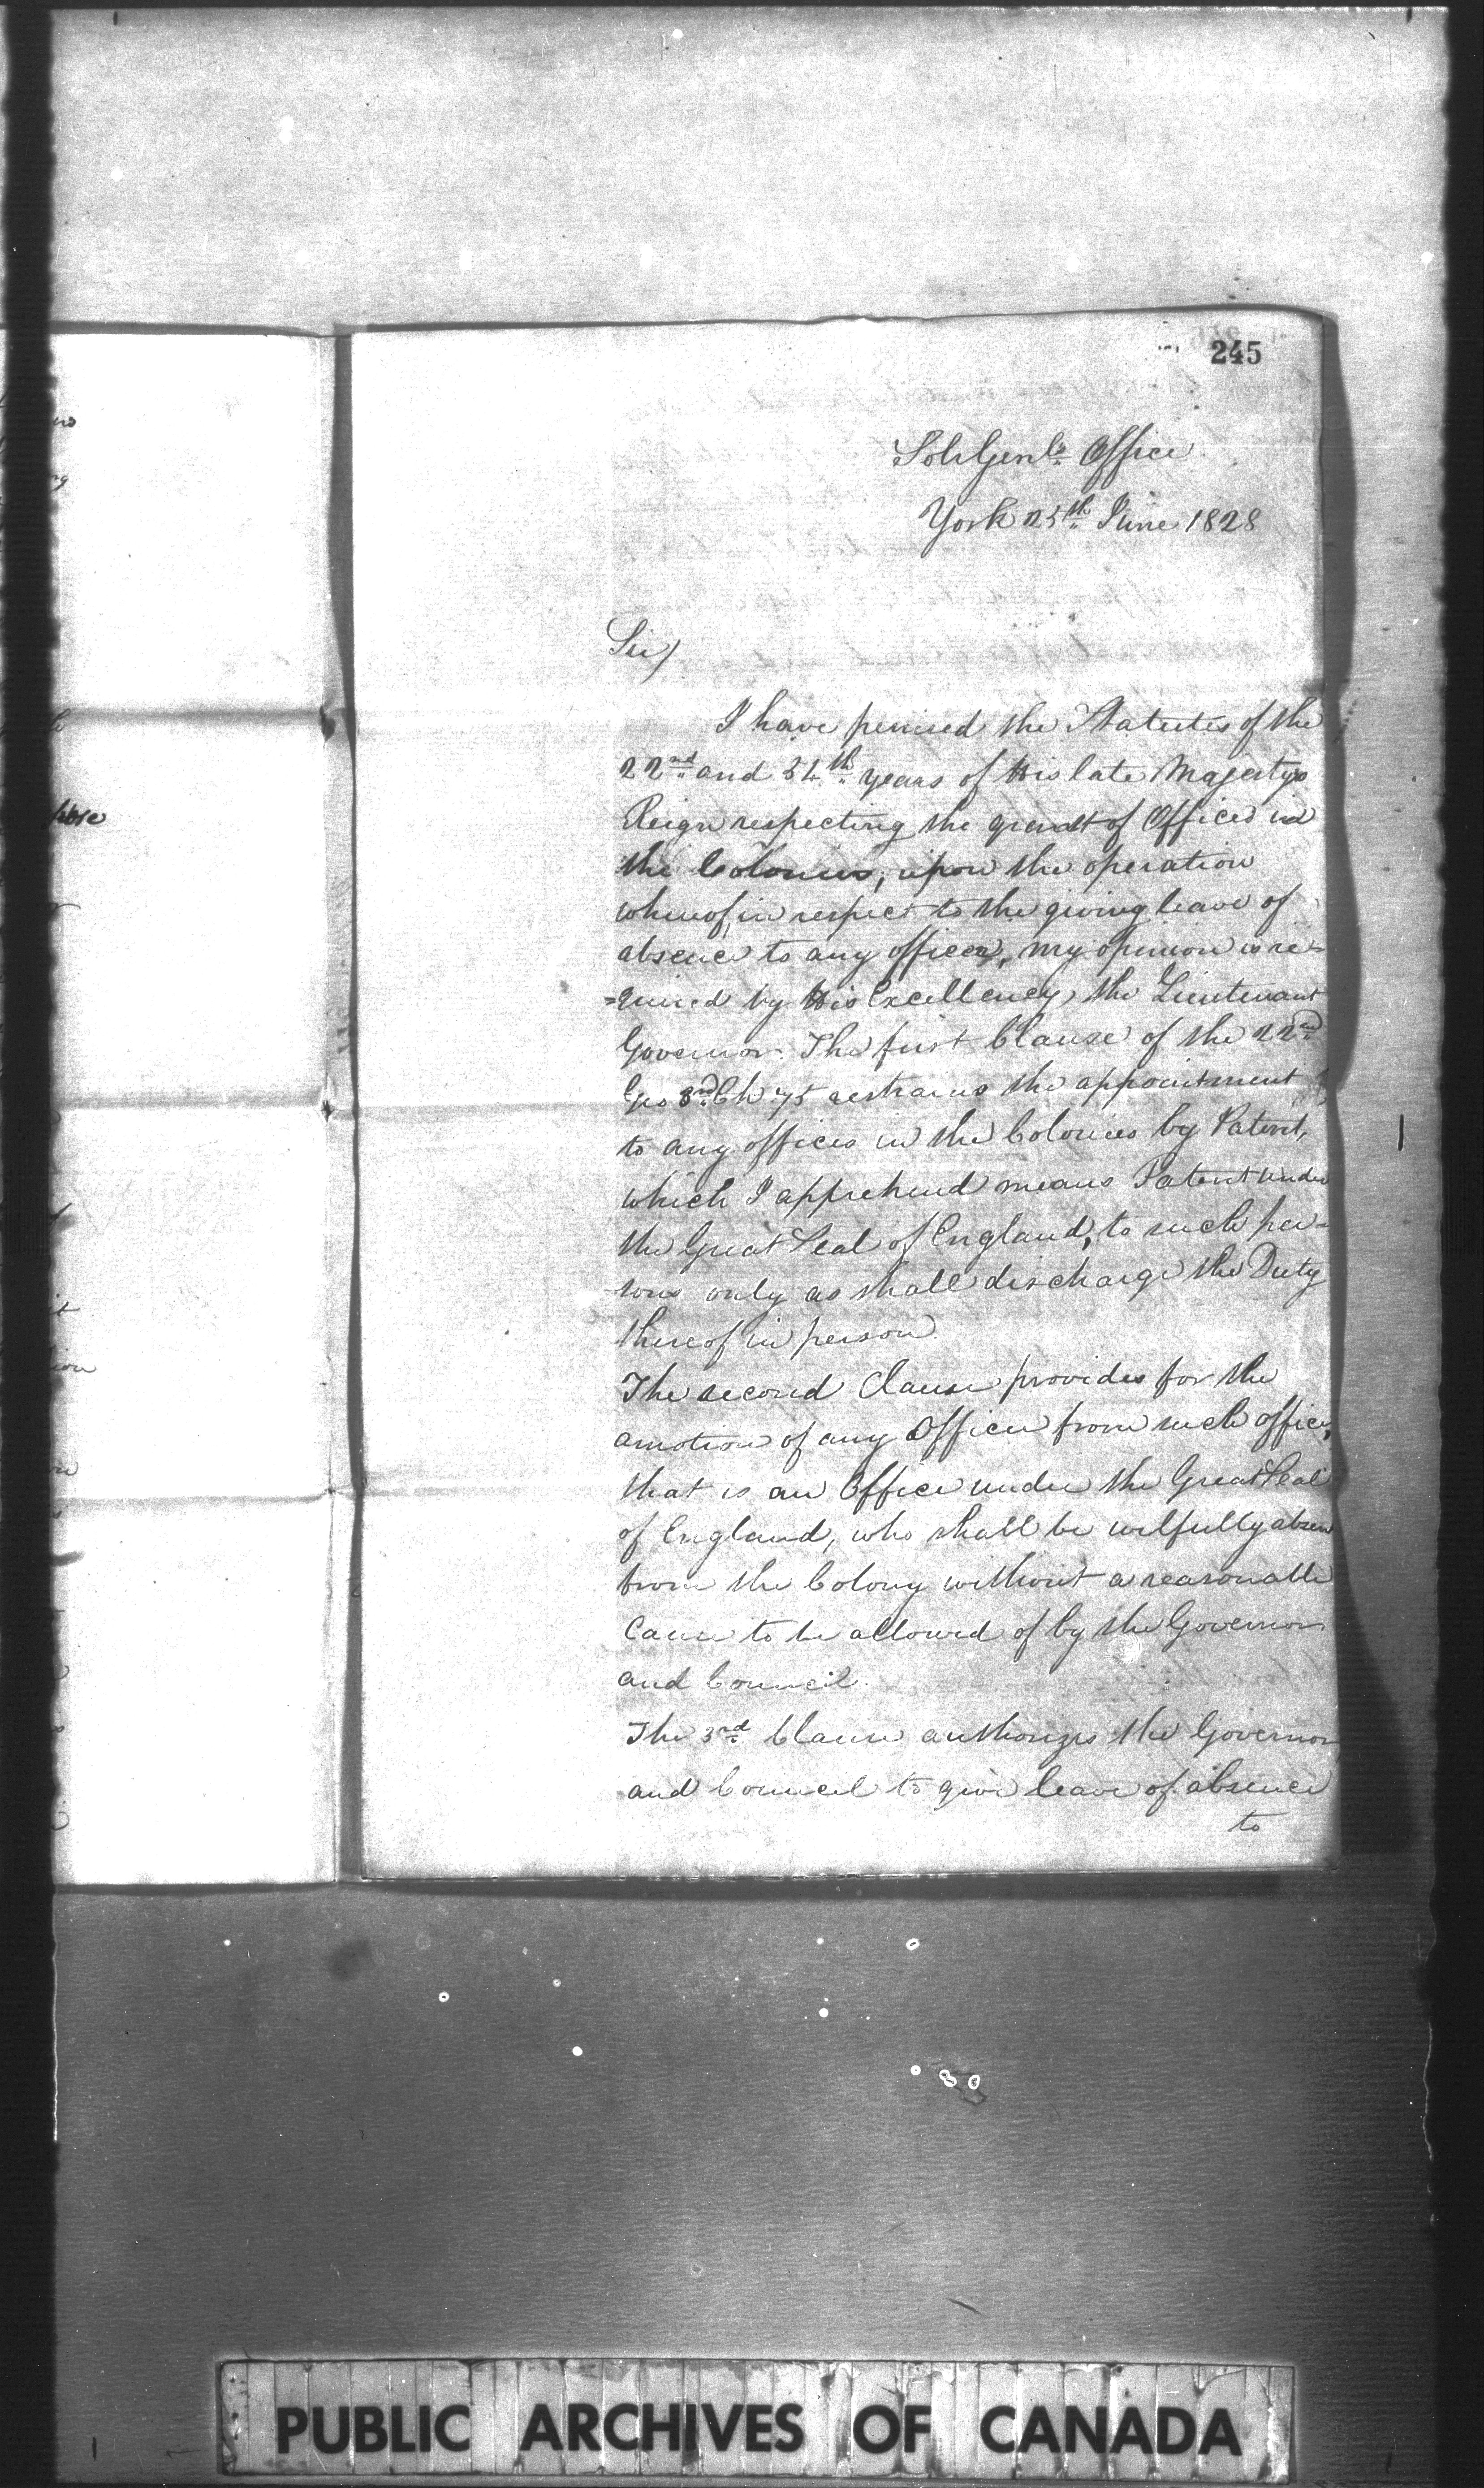 245
Sol: Genls Office
York 25th June 1828
Sir/
I have perused the Statutes of the
22nd and 54th years of His late Majestys
Reign respecting the grant of Offices in
the Colonies, upon the operation
whereof, in respect to the giving leave of
absence to any officer, my opinion is re=
=quired by His Excellency, the Lieutenant
Governor. The first Clause of the 22nd
Geo 3rd Ch 75 restrains the appointment
to any offices in the Colonies by Patent,
which I apprehend means Patent under
the Great Seal of England, to such per-
sons only as shall discharge the Duty
thereof in person.
The second Clause provides for the
amotion of any Officer from such office,
that is an Office under the Great Seal
of England, who shall be wilfully absen
from the Colony without a reasonable
Cause to be allowed of by the Governor
and Council.
The 3rd Clause authorizes the Governor
and Council to give leave of absence
to
PUBLIC ARCHIVES OF CANADA